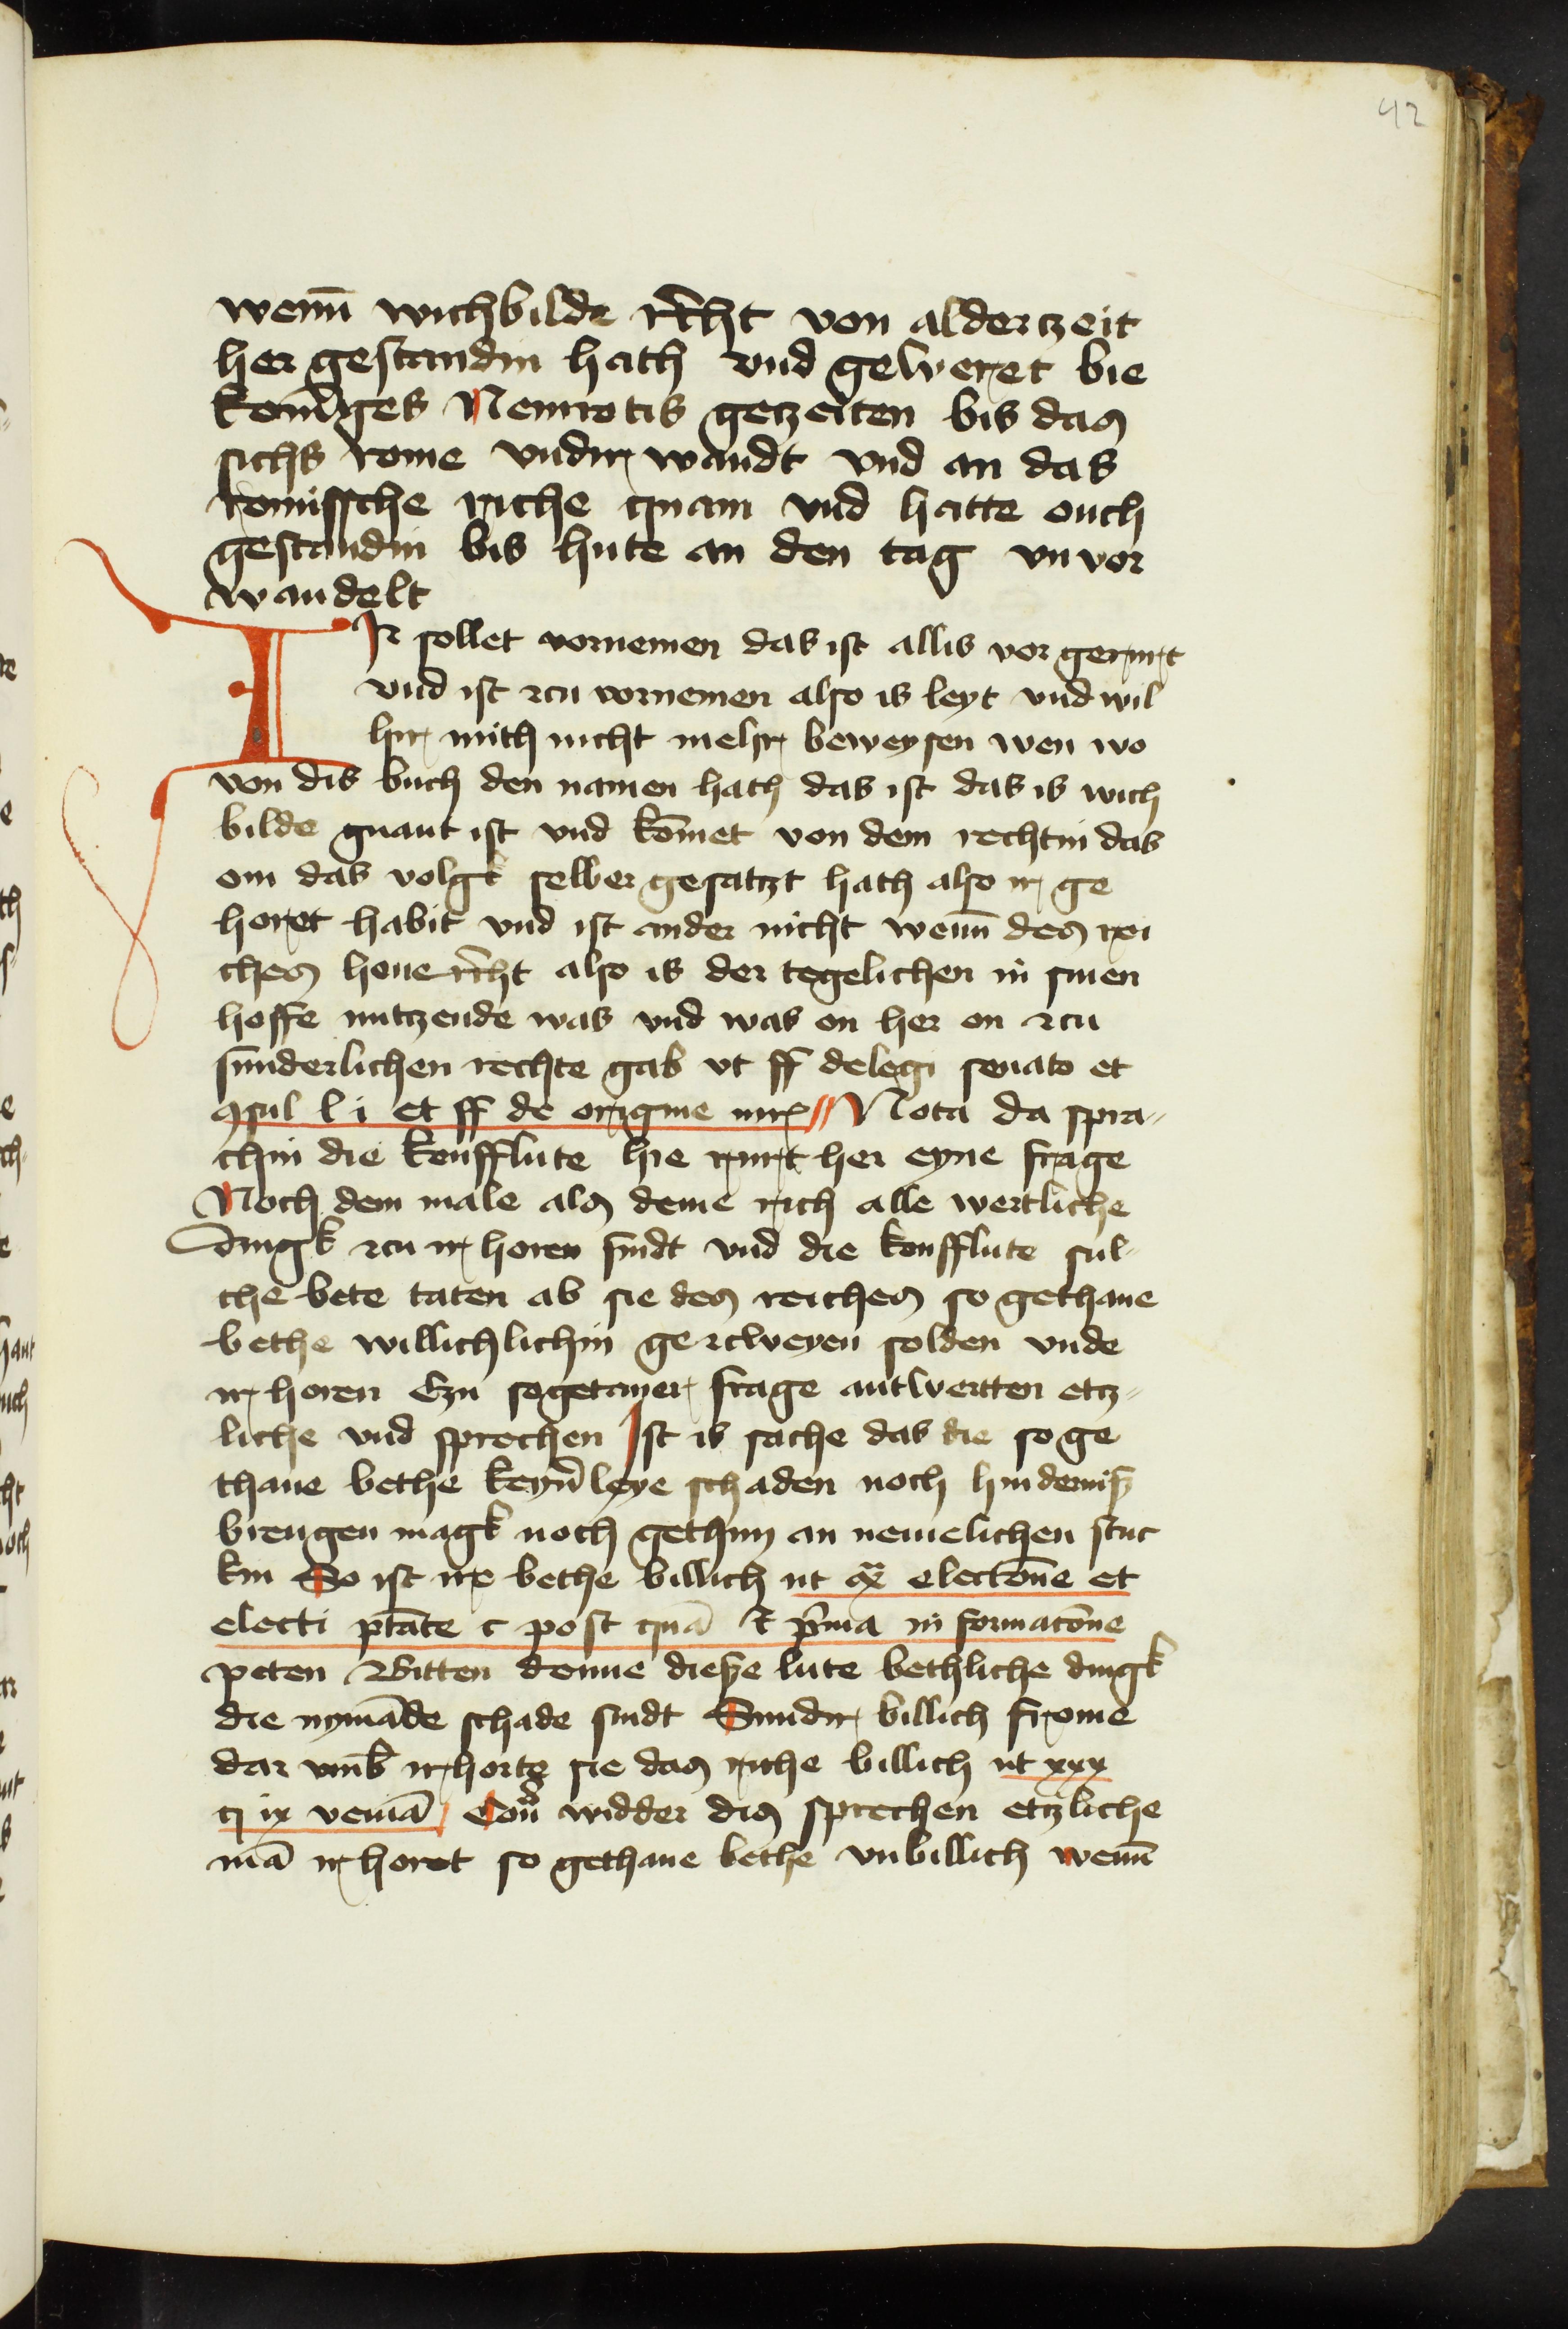 42
wenn̄ wichbilde rēcht von alderczeit
her gestandin hath vnd geweret bie
koninges Nemrotis getzeiten bis das
sichs rome vndir wandt vnd an das
romissche riche quam vnd hatte ouch
gestandin bis hute an den tag vnvor
wandelt
IR sollet vornemen das ist allis vor gerurt
vnd ist zcu vornemen also is leyt vnd wil
hir mith nicht mehir beweysen wen wo
von dis buch den namen hath das ist das is wich
bilde gnant ist vnd kōmet von dem rechtin das
om das volgk selber gesatzt hath also ir ge
horet habit vnd ist ander nicht wenn̄ des rei
ches houerēcht also is der tegelichen in sinen
hoffe nutzende was vnd was on her on zcu
sunderlichen rechte gab vt ff de legi senato et
ꝯsul l i et ff de origine iur Nota da spra-
chin die koufflute hie rurt her eyne frage
Noch dem male als deme rich alle wertliche
dingk zcu ir horen sindt vnd die koufflute sul-
che bete taten ab sie des reiches so gethane
bethe willichlichin gezcweyen solden vnde
ir horen Czu sogetaner frage antwertten etz-
liche vnd sprechen Ist is sache das die so ge
thane bethe keyn̄leye schaden noch hindernisz
brengen magk noch gethun an nemelichen stuc
kin So ist ire bethe billich ut ex̄ electōne et
electi ptāte c post quā et p̄ma in formacōne
peten Bitten denne diesze lute bethliche dingk
die nymāde schade sindt Sundir billich frome
dar vmb ir horte sie das riche billich ut xxx
q ix veniā Con̄ widder dis sprechen etzliche
mā ir horet so gethane bethe vnbillich wenn̄